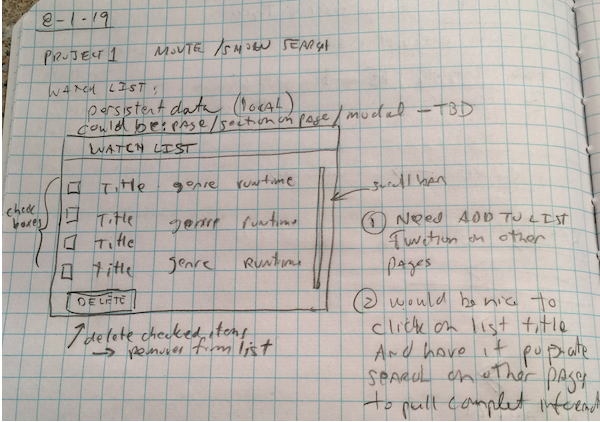 8-1-19
PROJECT 1 MOVIE/SHOW SEARCH
WATCH LIST:
persistent data (local)
could be: page/section on page/modal - TBD
WATCH LIST
Title genre runtime
Title genre runtime
Title
Title genre Runtime
DELETE
check boxes
scroll bar
delete checked items
→ removes from list
① NEED ADD TO LIST
function on other
pages
② would be nice to
click on list title
And have it popuate
SEARCH on other pages
to pull complet